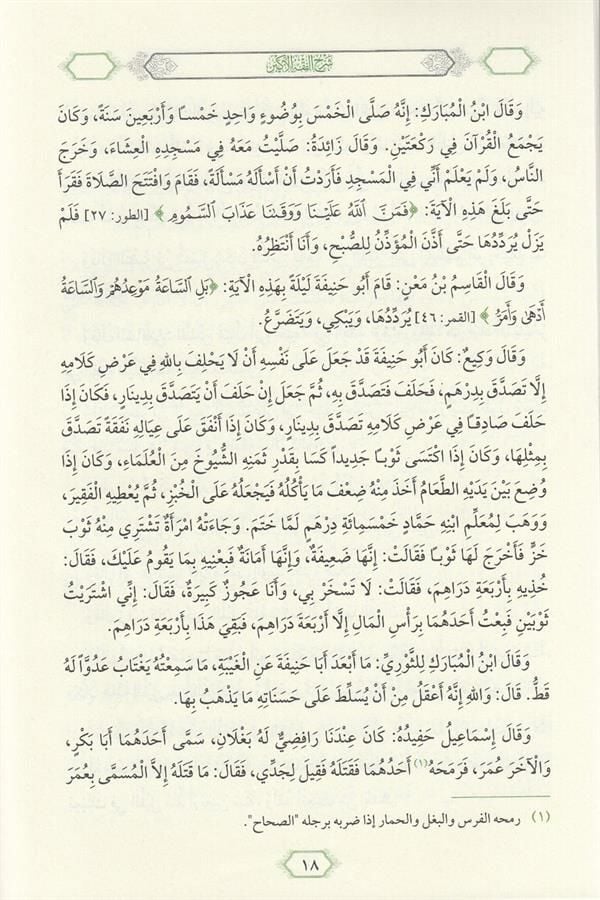 شرح الفقه الأكبر
وَقَالَ ابْنُ الْمُبَارَكِ: إِنَّهُ صَلَّى الْخَمْسَ بِوُضُوءٍ وَاحِدٍ خَمْسًا وَأَرْبَعِينَ سَنَةً، وَكَانَ
يَجْمَعُ الْقُرْآنَ فِي رَكْعَتَيْنِ. وَقَالَ زَائِدَةُ: صَلَّيْتُ مَعَهُ فِي مَسْجِدِهِ الْعِشَاءَ، وَخَرَجَ
النَّاسُ، وَلَمْ يَعْلَمْ أَنِّي فِي الْمَسْجِدِ فَأَرَدْتُ أَنْ أَسْأَلَهُ مَسْأَلَةً، فَقَامَ وَافْتَتَحَ الصَّلَاةَ فَقَرَأَ
حَتَّى بَلَغَ هَذِهِ الْآيَةَ: ﴿فَمَنَّ اللَّهُ عَلَيْنَا وَوَقَىٰنَا عَذَابَ السَّمُومِ﴾ [الطور: ٢٧] فَلَمْ
يَزَلْ يُرَدِّدُهَا حَتَّى أَذَّنَ الْمُؤَذِّنُ لِلصُّبْحِ، وَأَنَا أَنْتَظِرُهُ.
وَقَالَ الْقَاسِمُ بْنُ مَعْنٍ: قَامَ أَبُو حَنِيفَةَ لَيْلَةً بِهَذِهِ الْآيَةِ: ﴿بَلِ السَّاعَةُ مَوْعِدُهُمْ وَالسَّاعَةُ
أَدْهَىٰ وَأَمَرُّ﴾ [القمر: ٤٦] يُرَدِّدُهَا، وَيَبْكِي، وَيَتَضَرَّعُ.
وَقَالَ وَكِيعٌ: كَانَ أَبُو حَنِيفَةَ قَدْ جَعَلَ عَلَى نَفْسِهِ أَنْ لَا يَحْلِفَ بِاللهِ فِي عَرْضِ كَلَامِهِ
إِلَّا تَصَدَّقَ بِدِرْهَمٍ، فَحَلَفَ فَتَصَدَّقَ بِهِ، ثُمَّ جَعَلَ إِنْ حَلَفَ أَنْ يَتَصَدَّقَ بِدِينَارٍ، فَكَانَ إِذَا
حَلَفَ صَادِقًا فِي عَرْضِ كَلَامِهِ تَصَدَّقَ بِدِينَارٍ، وَكَانَ إِذَا أَنْفَقَ عَلَى عِيَالِهِ نَفَقَةً تَصَدَّقَ
بِمِثْلِهَا، وَكَانَ إِذَا اكْتَسَى ثَوْبًا جَدِيدًا كَسَا بِقَدْرِ ثَمَنِهِ الشُّيُوخَ مِنَ الْعُلَمَاءِ، وَكَانَ إِذَا
وُضِعَ بَيْنَ يَدَيْهِ الطَّعَامُ أَخَذَ مِنْهُ ضِعْفَ مَا يَأْكُلُهُ فَيَجْعَلُهُ عَلَى الْخُبْزِ، ثُمَّ يُعْطِيهِ الْفَقِيرَ،
وَوَهَبَ لِمُعَلِّمِ ابْنِهِ حَمَّادٍ خَمْسَمِائَةِ دِرْهَمٍ لَمَّا خَتَمَ. وَجَاءَتْهُ امْرَأَةٌ تَشْتَرِي مِنْهُ ثَوْبَ
خَزٍّ فَأَخْرَجَ لَهَا ثَوْبًا فَقَالَتْ: إِنَّهَا ضَعِيفَةٌ، وَإِنَّهَا أَمَانَةٌ فَبِعْنِيهِ بِمَا يَقُومُ عَلَيْكَ، فَقَالَ:
خُذِيهِ بِأَرْبَعَةِ دَرَاهِمَ، فَقَالَتْ: لَا تَسْخَرْ بِي، وَأَنَا عَجُوزٌ كَبِيرَةٌ، فَقَالَ: إِنِّي اشْتَرَيْتُ
ثَوْبَيْنِ فَبِعْتُ أَحَدَهُمَا بِرَأْسِ الْمَالِ إِلَّا أَرْبَعَةَ دَرَاهِمَ، فَبَقِيَ هَذَا بِأَرْبَعَةِ دَرَاهِمَ.
وَقَالَ ابْنُ الْمُبَارَكِ لِلثَّوْرِيِّ: مَا أَبْعَدَ أَبَا حَنِيفَةَ عَنِ الْغَيْبَةِ، مَا سَمِعْتُهُ يَغْتَابُ عَدُوًّا لَهُ
قَطُّ. قَالَ: وَاللهِ إِنَّهُ أَعْقَلُ مِنْ أَنْ يُسَلِّطَ عَلَى حَسَنَاتِهِ مَا يَذْهَبُ بِهَا.
وَقَالَ إِسْمَاعِيلُ حَفِيدُهُ: كَانَ عِنْدَنَا رَافِضِيٌّ لَهُ بَغْلَانِ، سَمَّى أَحَدَهُمَا أَبَا بَكْرٍ،
وَالْآخَرَ عُمَرَ، فَرَمَحَهُ(١) أَحَدُهُمَا فَقَتَلَهُ فَقِيلَ لِجَدِّي، فَقَالَ: مَا قَتَلَهُ إِلاَّ الْمُسَمَّى بِعُمَرَ
(١) رمحه الفرس والبغل والحمار إذا ضربه برجله "الصحاح".
١٨